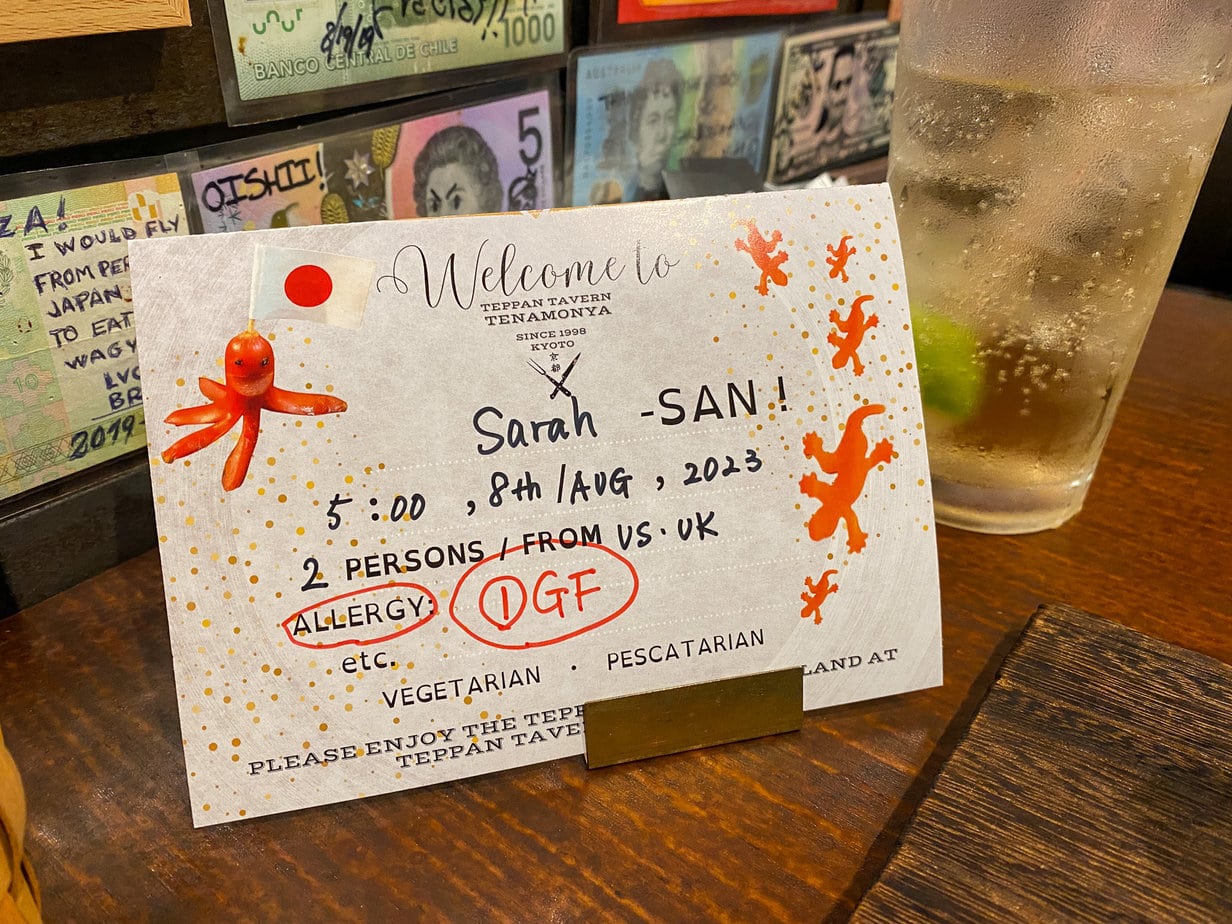 unur
8/19/19
1000
BANCO CENTRAL DE CHILE
AUSTRALIA
5
OISHII!
ZA!
I WOULD FLY
FROM PER
JAPAN
TO EAT
WAGY
BR
2019-
10
Welcome to
TEPPAN TAVERN
TENAMONYA
SINCE 1998
KYOTO
京都
Sarah -SAN!
5:00, 8th/AUG, 2023
2 PERSONS / FROM US・UK
ALLERGY: ①GF
etc.
VEGETARIAN ・ PESCATARIAN
PLEASE ENJOY THE TEPP LAND AT
TEPPAN TAVE